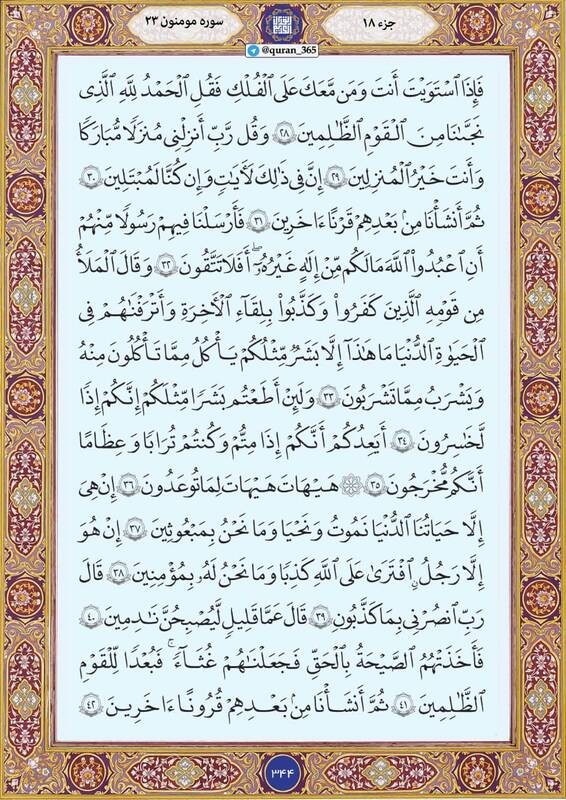 جزء ۱۸
سوره مومنون ۲۳
@quran_365
فَإِذَا ٱسْتَوَيْتَ أَنتَ وَمَن مَّعَكَ عَلَى ٱلْفُلْكِ فَقُلِ ٱلْحَمْدُ لِلَّهِ ٱلَّذِى
نَجَّىٰنَا مِنَ ٱلْقَوْمِ ٱلظَّٰلِمِينَ ۲۸ وَقُل رَّبِّ أَنزِلْنِى مُنزَلًا مُّبَارَكًا
وَأَنتَ خَيْرُ ٱلْمُنزِلِينَ ۲۹ إِنَّ فِى ذَٰلِكَ لَأَيَٰتٍ وَإِن كُنَّا لَمُبْتَلِينَ ۳۰
ثُمَّ أَنشَأْنَا مِنۢ بَعْدِهِمْ قَرْنًا ءَاخَرِينَ ۳۱ فَأَرْسَلْنَا فِيهِمْ رَسُولًا مِّنْهُمْ
أَنِ ٱعْبُدُوا۟ ٱللَّهَ مَا لَكُم مِّنْ إِلَٰهٍ غَيْرُهُۥٓ ۖ أَفَلَا تَتَّقُونَ ۳۲ وَقَالَ ٱلْمَلَأُ
مِن قَوْمِهِ ٱلَّذِينَ كَفَرُوا۟ وَكَذَّبُوا۟ بِلِقَآءِ ٱلْأَخِرَةِ وَأَتْرَفْنَٰهُمْ فِى
ٱلْحَيَوٰةِ ٱلدُّنْيَا مَا هَٰذَآ إِلَّا بَشَرٌ مِّثْلُكُمْ يَأْكُلُ مِمَّا تَأْكُلُونَ مِنْهُ
وَيَشْرَبُ مِمَّا تَشْرَبُونَ ۳۳ وَلَئِنْ أَطَعْتُم بَشَرًا مِّثْلَكُمْ إِنَّكُمْ إِذًا
لَّخَٰسِرُونَ ۳۴ أَيَعِدُكُمْ أَنَّكُمْ إِذَا مِتُّمْ وَكُنتُمْ تُرَابًا وَعِظَٰمًا
أَنَّكُم مُّخْرَجُونَ ۳۵ ۞ هَيْهَاتَ هَيْهَاتَ لِمَا تُوعَدُونَ ۳۶ إِنْ هِىَ
إِلَّا حَيَاتُنَا ٱلدُّنْيَا نَمُوتُ وَنَحْيَا وَمَا نَحْنُ بِمَبْعُوثِينَ ۳۷ إِنْ هُوَ
إِلَّا رَجُلٌ ٱفْتَرَىٰ عَلَى ٱللَّهِ كَذِبًا وَمَا نَحْنُ لَهُۥ بِمُؤْمِنِينَ ۳۸ قَالَ
رَبِّ ٱنصُرْنِى بِمَا كَذَّبُونِ ۳۹ قَالَ عَمَّا قَلِيلٍ لَّيُصْبِحُنَّ نَٰدِمِينَ ۴۰
فَأَخَذَتْهُمُ ٱلصَّيْحَةُ بِٱلْحَقِّ فَجَعَلْنَٰهُمْ غُثَآءً ۚ فَبُعْدًا لِّلْقَوْمِ
ٱلظَّٰلِمِينَ ۴۱ ثُمَّ أَنشَأْنَا مِنۢ بَعْدِهِمْ قُرُونًا ءَاخَرِينَ ۴۲
۳۴۴